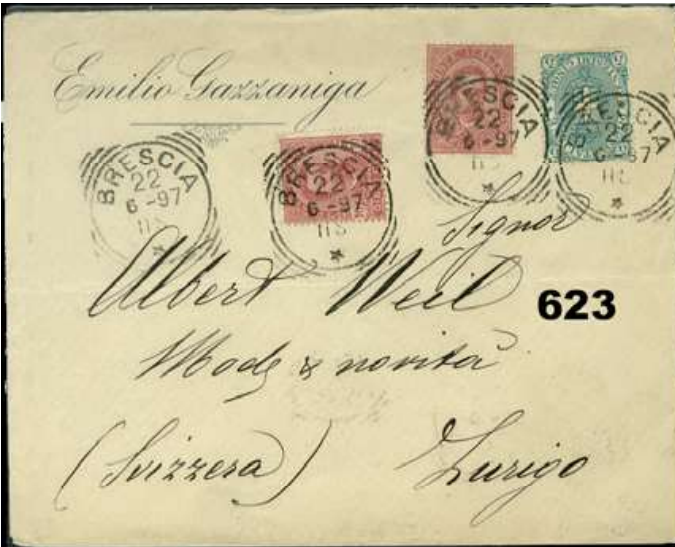 Emilio Gazzaniga
BRESCIA
22
6-97
BRESCIA
22
6-97
BRESCIA
22
6-97
BRESCIA
22
6-97
Signor
Albert Weil
623
Mode & novità
(Svizzera) Zurigo